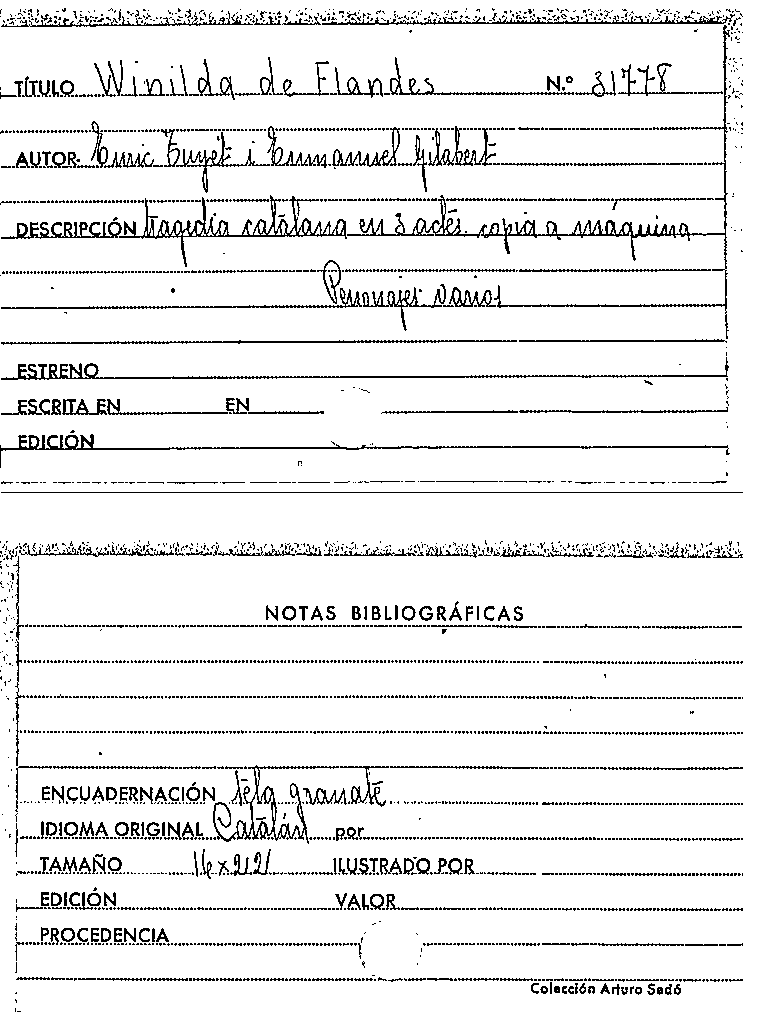 TÍTULO Winilda de Flandes N.º 31778
AUTOR Enric Tuyet i Emmanuel Gilabert
DESCRIPCIÓN tragedia catalana en 3 actes. copia a máquina
Personajes varios
ESTRENO
ESCRITA EN EN
EDICIÓN
NOTAS BIBLIOGRÁFICAS
ENCUADERNACIÓN tela granate
IDIOMA ORIGINAL Catalán por
TAMAÑO 16x22 ILUSTRADO POR
EDICIÓN VALOR
PROCEDENCIA
Colección Arturo Sedó